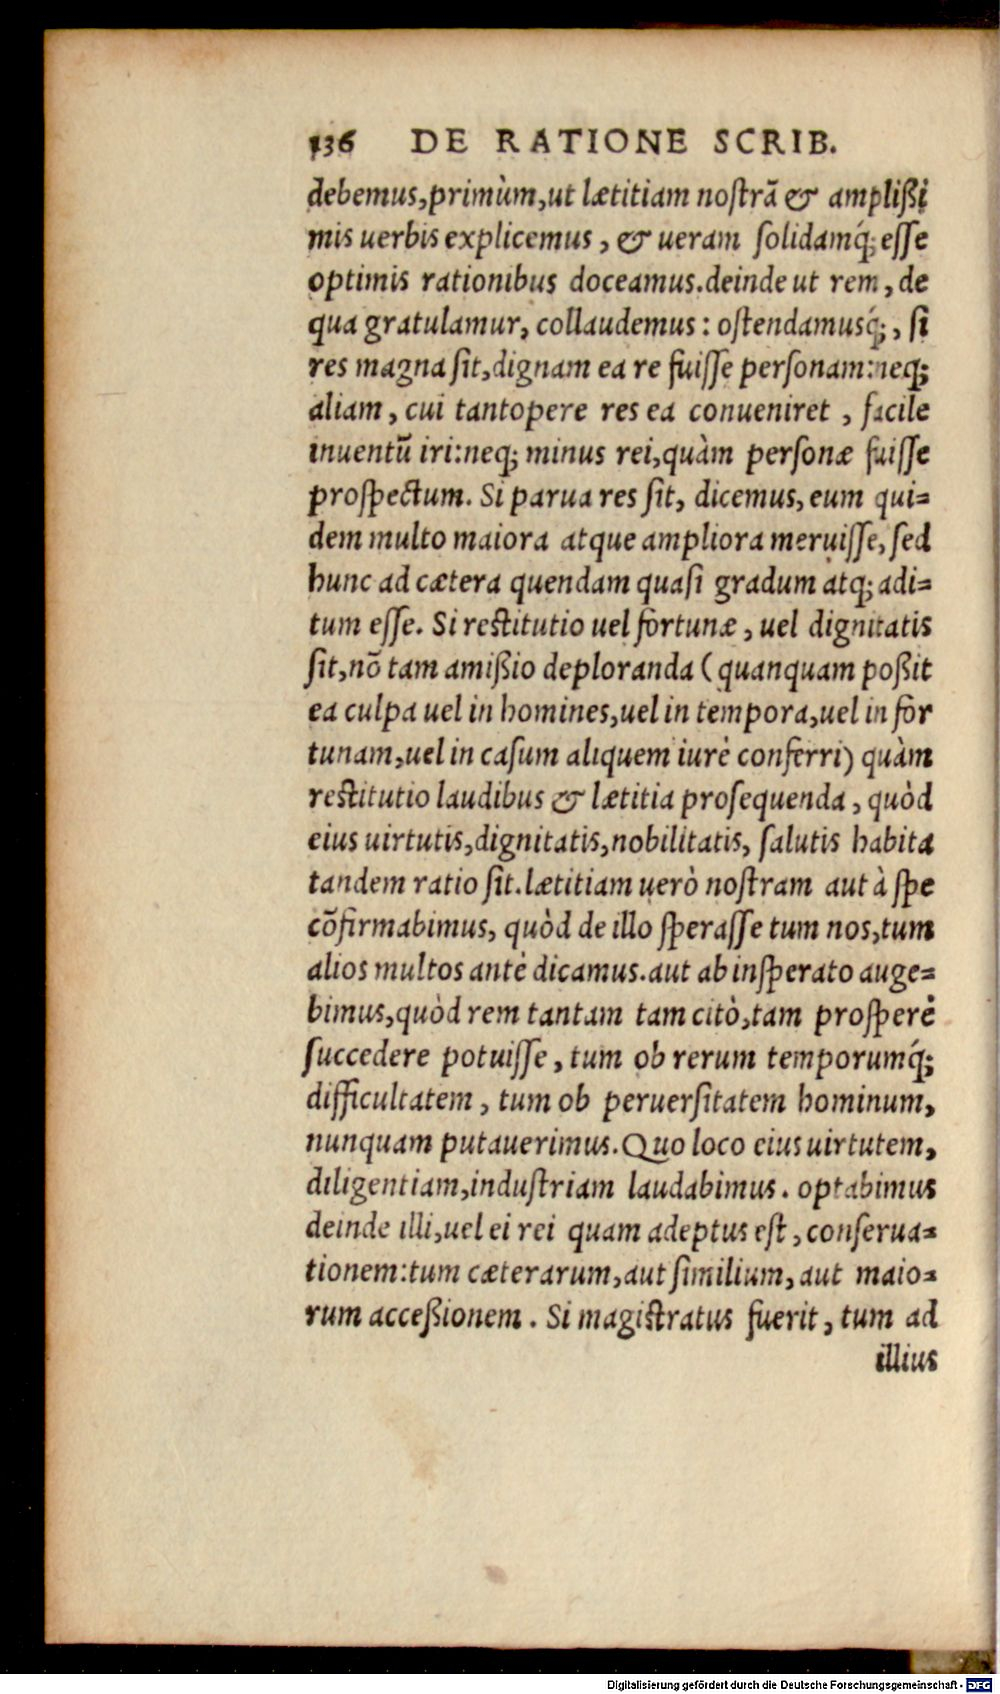 136 DE RATIONE SCRIB.
debemus,primùm,ut lætitiam noſtrã & amplißi
mis uerbis explicemus, & ueram ſolidamq́; eſſe
optimis rationibus doceamus.deinde ut rem, de
qua gratulamur, collaudemus: oſtendamusq́;, ſi
res magna ſit,dignam ea re fuiſſe perſonam:neq;
aliam, cui tantopere res ea conueniret, facile
inuentũ iri:neq; minus rei,quàm perſonæ fuiſſe
proſpectum. Si parua res ſit, dicemus, eum qui=
dem multo maiora atque ampliora meruiſſe, ſed
hunc ad cætera quendam quaſi gradum atq; adi=
tum eſſe. Si reſtitutio uel fortunæ, uel dignitatis
ſit,nõ tam amißio deploranda (quanquam poßit
ea culpa uel in homines,uel in tempora,uel in for
tunam,uel in caſum aliquem iurè conferri) quàm
reſtitutio laudibus & lætitia proſequenda, quòd
eius uirtutis,dignitatis,nobilitatis, ſalutis habita
tandem ratio ſit.lætitiam uerò noſtram aut à ſpe
cõfirmabimus, quòd de illo ſperaſſe tum nos,tum
alios multos antè dicamus.aut ab inſperato auge=
bimus,quòd rem tantam tam citò,tam proſperè
ſuccedere potuiſſe, tum ob rerum temporumq́;
difficultatem, tum ob peruerſitatem hominum,
nunquam putauerimus.Quo loco eius uirtutem,
diligentiam,induſtriam laudabimus. optabimus
deinde illi,uel ei rei quam adeptus eſt, conſerua=
tionem:tum cæterarum,aut ſimilium, aut maio=
rum acceßionem. Si magiſtratus fuerit, tum ad
illius
Digitalisierung gefördert durch die Deutsche Forschungsgemeinschaft - DFG